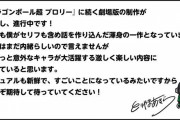 ラゴンボール超 ブロリー」に続く劇場版の制作が
し、進行中です！
も僕がセリフも含め話を作り込んだ渾身の一作となってい
はまだ内緒らしいので言えませんが
っと意外なキャラが大活躍する激しく楽しい内容に
ていると思います。
ュアルも新鮮で、すごいことになっているみたいですから
ぞ期待して待っていてください！